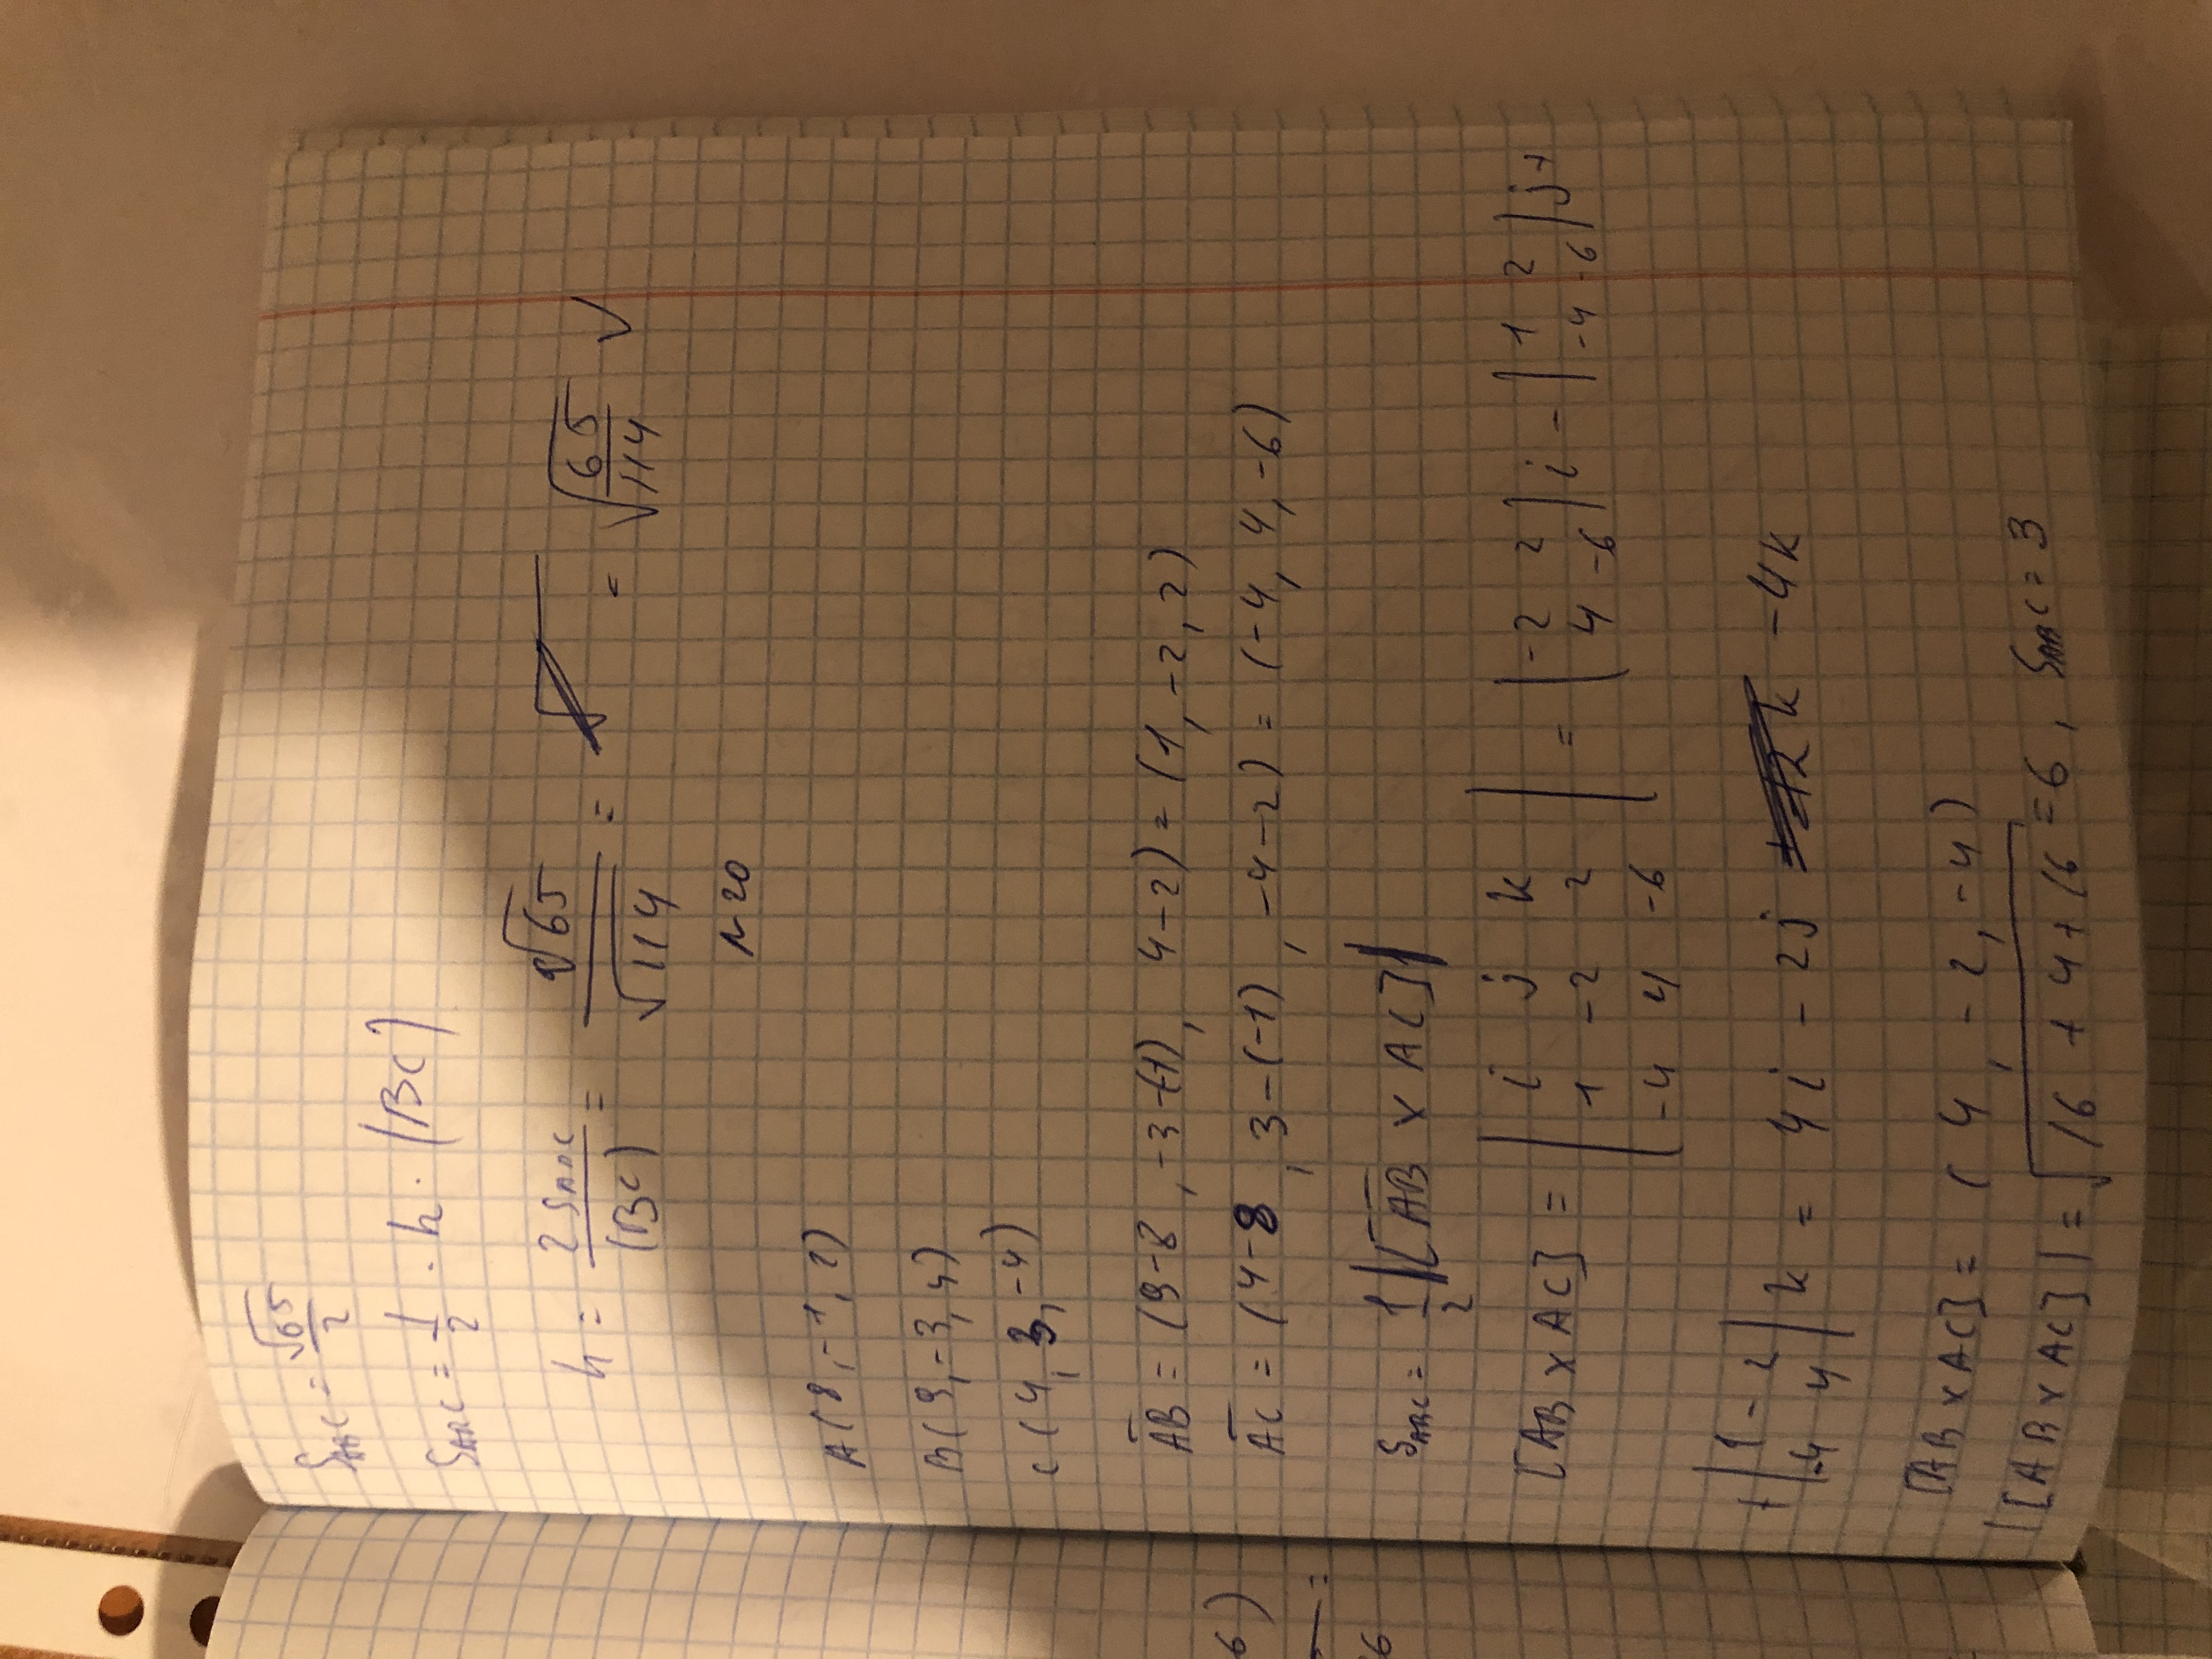 S_ABC = √65/2
S_ABC = 1/2 · h · |BC|
h = 2S_ABC/|BC| = √65/√114 = = √65/√114 √
N20
A(8, -1, 2)
B(9, -3, 4)
C(4, 3, -4)
AB = (9-8, -3-(-1), 4-2) = (1, -2, 2)
AC = (4-8, 3-(-1), -4-2) = (-4, 4, -6)
S_ABC = 1/2 |[AB × AC]|
[AB × AC] = | i j k | = | -2 2 | i - | 1 2 | j +
1 -2 2
4 -6
-4 -6
-4 4 -6
+ | 1 -2 | k = 4i - 2j -4k
-4 4
[AB × AC] = (4, -2, -4)
|[AB × AC]| = √16 + 4 + 16 = 6, S_ABC = 3
6)
6
=